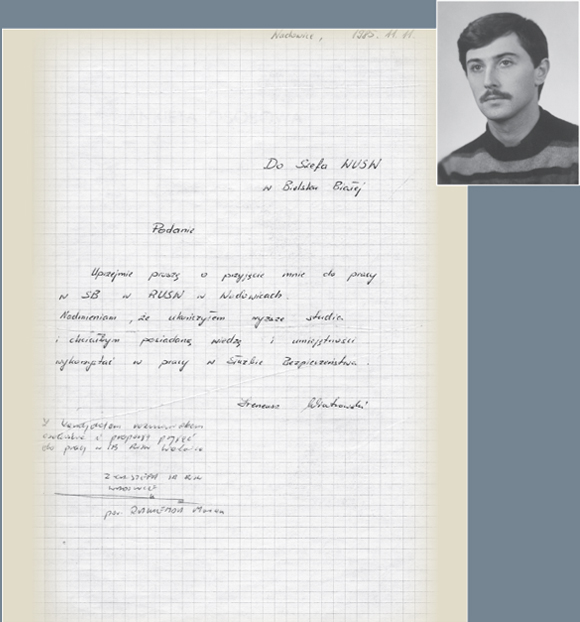 Wadowice, 1985.11.11.
Do Szefa WUSW
w Bielsku Białej
Podanie
Uprzejmie proszę o przyjęcie mnie do pracy
w SB w RUSW w Wadowicach.
Nadmieniam, że ukończyłem wyższe studia
i chciałbym posiadaną wiedzę i umiejętności
wykorzystać w pracy w Służbie Bezpieczeństwa.
Ireneusz
Z kandydatem rozmawiałem
i proponuję przyjąć
do pracy w SB
Z-CA SZEFA
WADOWICE
por.